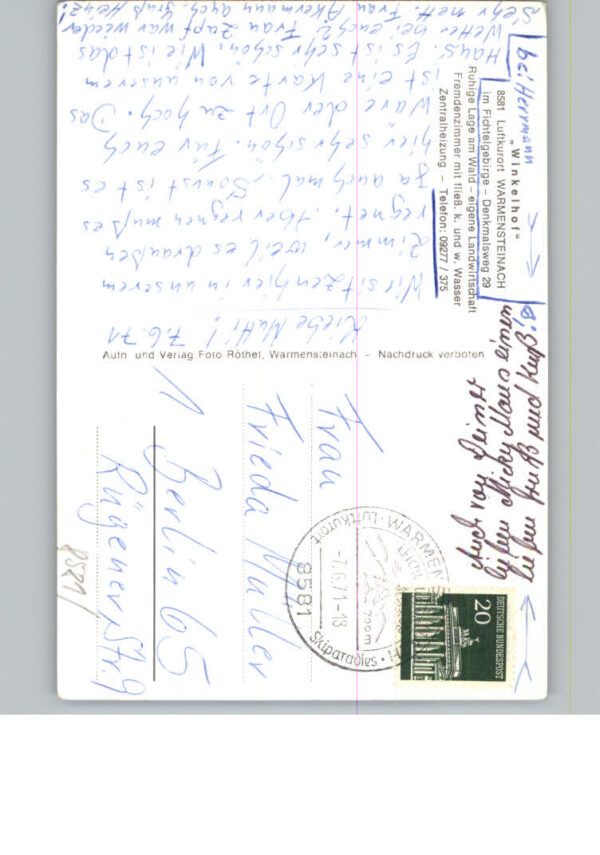 „Winkelhof"
8581 Luftkurort WARMENSTEINACH
im Fichtelgebirge – Denkmalsweg 29
Ruhige Lage am Wald – eigene Landwirtschaft
Fremdenzimmer mit fließ. k. und w. Wasser
Zentralheizung – Telefon: 09277 / 375
bei Herrmann
Liebe Mutti! 7.6.71
Wir sitzen hier in unserem
Zimmer, weil es draußen
regnet. Aber regnen muß es
ja auch mal. Sonst ist es
hier sehr schön. Für euch
wäre der Ort zu hoch. Das
ist eine Karte von unserem
Haus. Es ist sehr schön. Wie ist das
Wetter bei euch? Frau Zapf war wieder
sehr nett. Frau Akermann auch. Gruß Heinz!
Auch von Deiner
lieben Micky Maus einen
lieben Gruß und Kuß
Aufn. und Verlag Foto Röthel, Warmensteinach - Nachdruck verboten
Frau
Frieda Müller
1 Berlin 65
Rügener Str. 9
8581
20
DEUTSCHE BUNDESPOST
8581
-7.6.71-18
Luftkurort
Skiparadies
700m